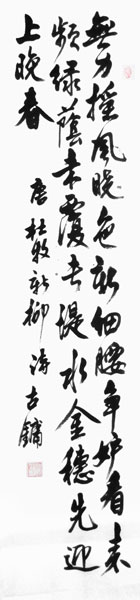 無力搖風曉色新細腰爭妒看來
頻綠蔭未覆長堤水金穗先迎
上晚春
唐杜牧新柳詩古鏞